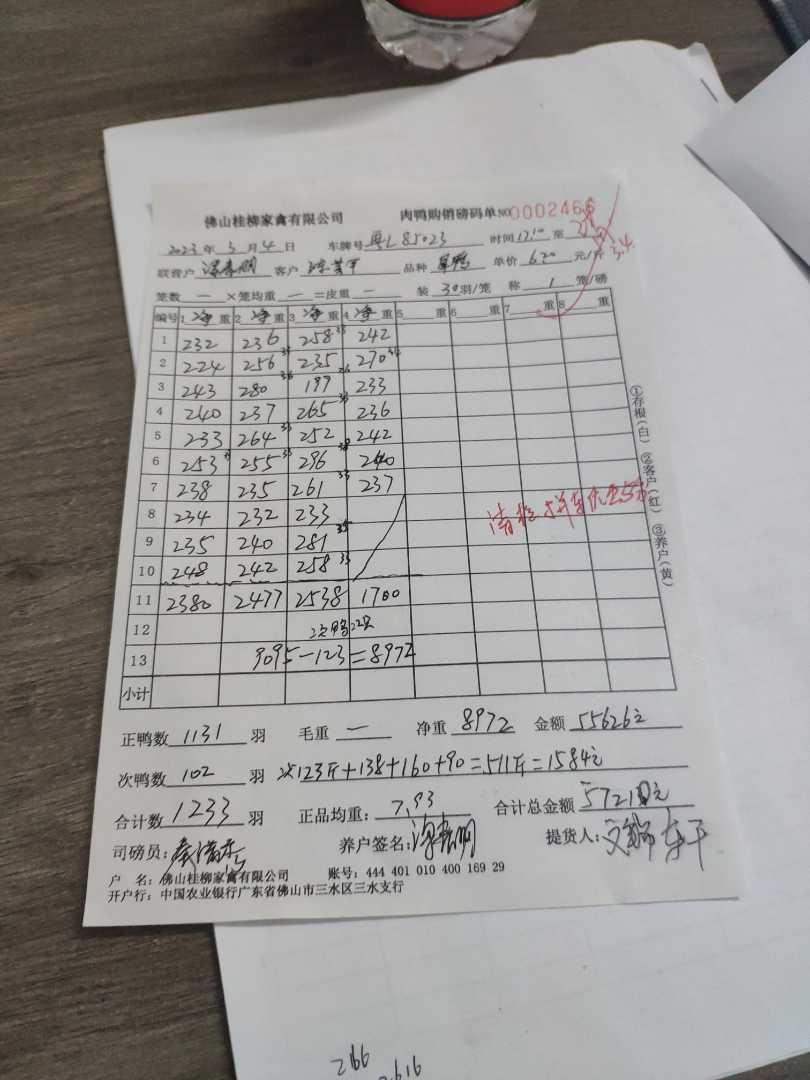 佛山桂柳家禽有限公司 肉鸭购销磅码单 NO 0002466
2023年3月4日 车牌号 粤L85023 时间 12:10 至
联营户 客户 品种 单价 6.20 元/斤 34
笼数 一 ×笼均重 一 =皮重 一 装 30羽/笼 称 1 笼/磅
编号 1 净 重 2 净 重 3 净 重 4 净 重 5 重 6 重 7 重 8 重
1 232 236 258 33 242
2 224 256 33 235 270 34
3 243 280 36 199 26 233
4 240 237 265 33 236
5 233 264 33 252 242
6 253 255 33 296 38 240
7 238 235 261 33 237
8 234 232 233
9 235 240 281 35
10 248 242 258 33
11 2380 2477 2538 1700
12 次鸭22只
13 9095-123=8972
小计
①存根(白) ②客户(红) ③养户(黄)
正鸭数 1131 羽 毛重 一 净重 8972 金额 55626元
次鸭数 102 羽 123斤+138+160+90=511斤=1584元
合计数 1233 羽 正品均重: 7.93 合计总金额 57210元
司磅员: 养户签名: 提货人:
户 名: 佛山桂柳家禽有限公司 账号: 444 401 010 400 169 29
开户行: 中国农业银行广东省佛山市三水区三水支行
266
2616